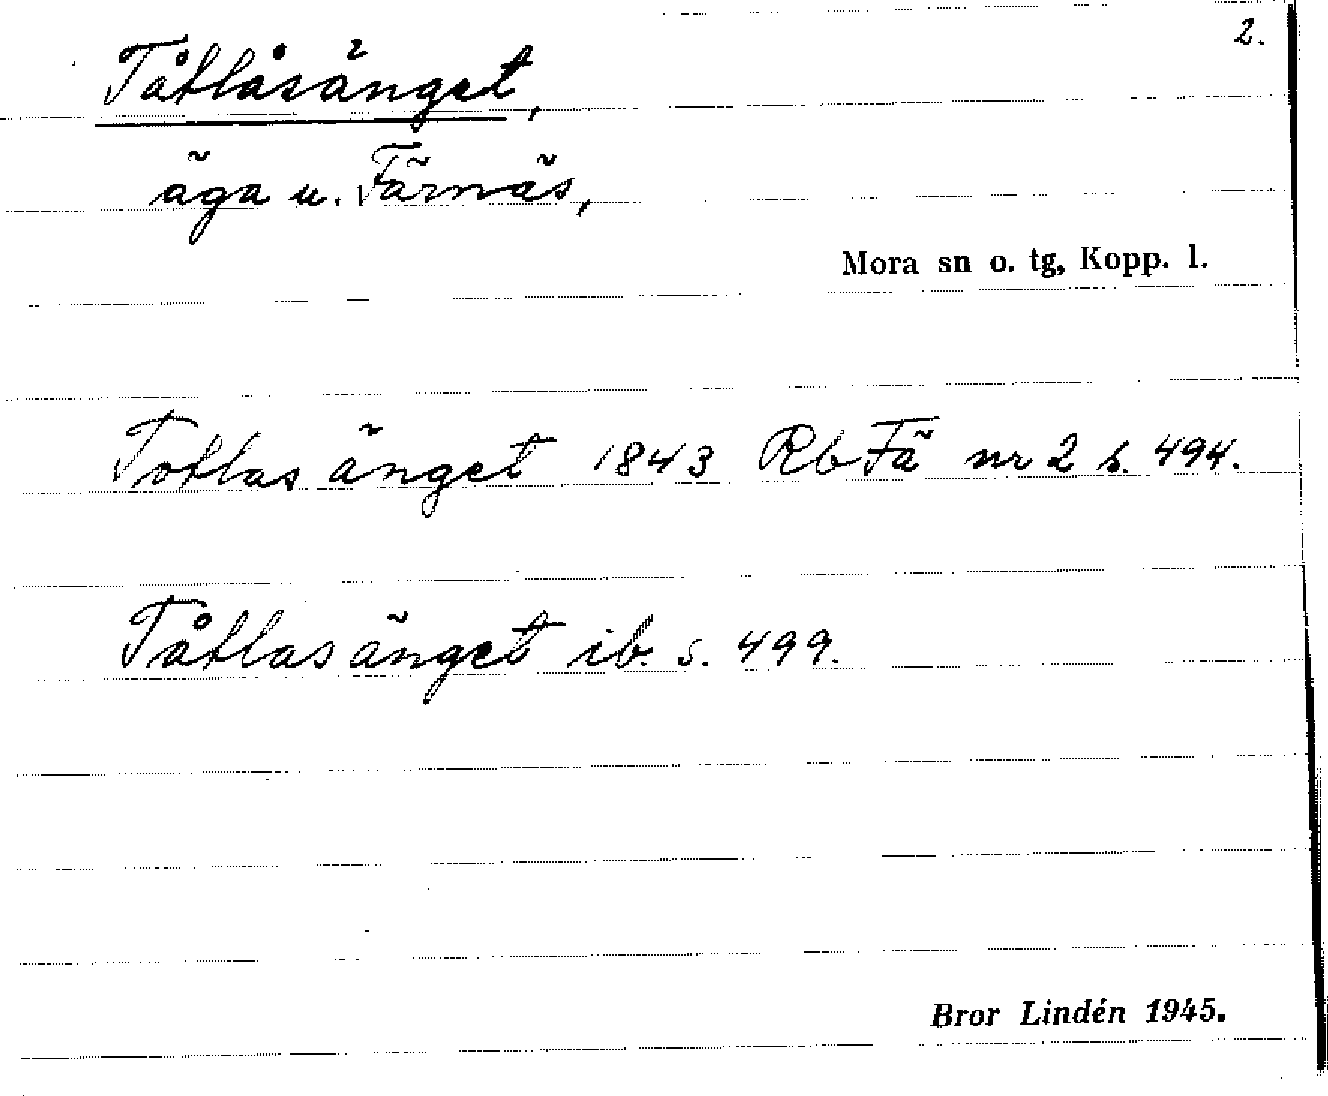 2.
Tåtlåsänget,
äga u. Färnäs,
Mora sn o. tg, Kopp. l.
Totlas änget 1843 Rb Fä nr 2 s. 494.
Tåtlasänget ib. s. 499.
Bror Lindén 1945.